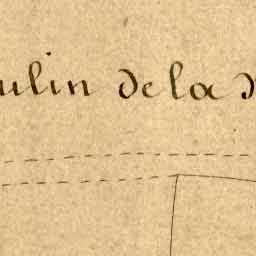 ulin de la